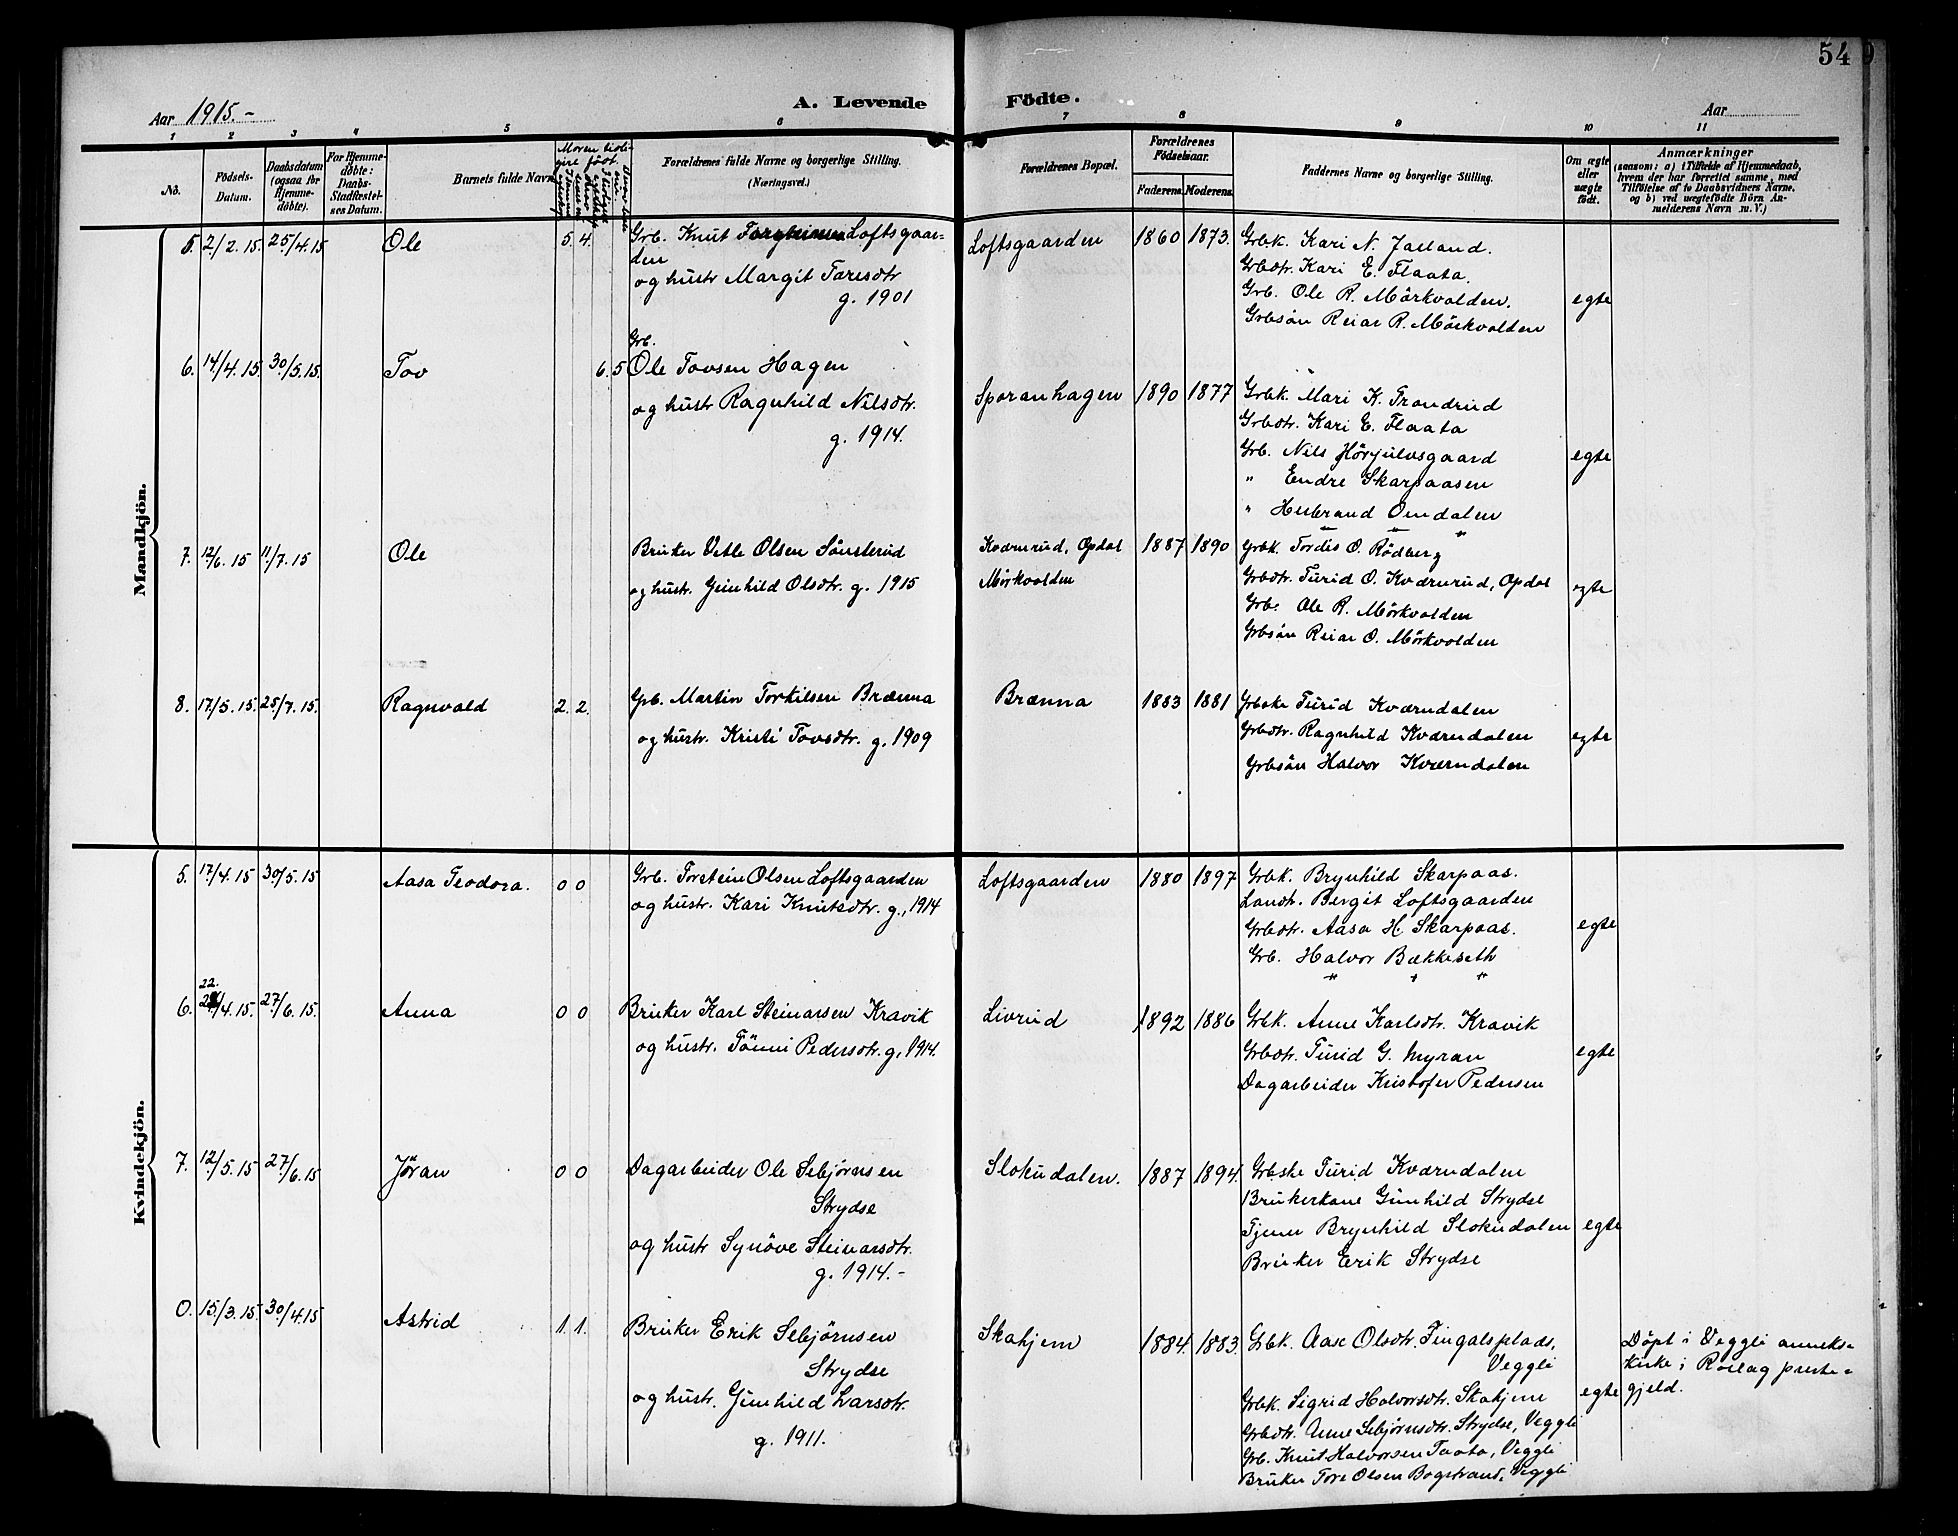 54
Aar 1915.-
A. Levende Födte.
Aar
1 2 3 4 5 6 7 8 9 10 11
No.
Födsels-Datum.
Daabsdatum (ogsaa for Hjemme-döbte).
For Hjemme-döbte: Daabs-Stadfæstel-ses Datum.
Barnets fulde Navn.
Forældrenes fulde Navne og borgerlige Stilling. (Næringsvei.)
Forældrenes Bopæl.
Forældrenes Födselsaar.
Faderens. Moderens.
Faddernes Navne og borgerlige Stilling.
Om ægte eller uægte födt.
Anmærkninger
(saasom: a) i Tilfælde af Hjemmedaab, hvem der har forrettet samme, med Tilföielse af to Daabsvidners Navne, og b) ved uægtefödte Börn An-melderens Navn m. V.)
Mandkjön.
5. 2/2. 15. 25/4. 15 Ole 5. 4. Grb. Knut Loftsgaar-
den
og hustr Margit Taresdtr
g. 1901
Loftsgaarden 1860 1873.
Grbk. Kari N. Jaeland.
Grbdtr. Kari E. Flaata.
Grb. Ole R. Mörkvolden.
Grbsön Reiar R. Mörkvolden
egte
6. 14/4. 15. 30/5. 15. Tov 6. 5 Grb.
Ole Tovsen Hagen
og hustr Ragnhild Nilsdtr.
g. 1914.
Sporanhagen 1890 1877
Grbk. Mari K. Trondrud
Grbdtr. Kari E. Flaata
Grb. Nils Hörjulvsgaard
" Endre Skarpaasen
" Herbrand Omdalen
egte
7. 12/6. 15 11/7. 15 Ole
Bruker Vetle Olsen Sönsterud
og hustr. Gunhild Olsdtr. g. 1915
Kværnrud, Opdal
Mörkvolden
1887 1890
Grbk. Tordis O. Rödberg
Grbdtr. Turid O. Kværnrud, Opdal
Grb. Ole R. Mörkvolden
Grbsön Reiar O. Mörkvolden
egte
8. 17/5. 15. 25/7. 15. Ragnvald 2. 2.
Grb. Martin Torkilsen Brænna
og hustr. Kristi Tovsdtr. g. 1909
Brænna 1883 1881
Grbske Turid Kværndalen
Grbdtr. Ragnhild Kværndalen
Grbsön Halvor Kværndalen
egte
Kvindekjön.
5. 17/4. 15 30/5. 15 Aasa Teodora. 0 0
Grb. Torstein Olsen Loftsgaarden
og hustr. Kari Knutsdtr. g. 1914
Loftsgaarden 1880 1897
Grbk. Brynhild Skarpaas.
Landh. Bergit Loftsgaarden
Grbdtr. Aasa H Skarpaas.
Grb. Halvor Bækkeseth
egte
6. 22./4. 15. 27/6. 15. Anna 0 0
Bruker Karl Steinarsen Kravik
og hustr. Tönni Pedersdtr. g. 1914.
Livrud 1892 1886
Grbk. Anne Karlsdtr. Kravik
Grbdtr. Turid G. Myran
Dagarbeider Kristofer Pedersen
egte
7. 12/5. 15 27/6. 15 Jöran 0 0
Dagarbeider Ole Sebjørnsen
Strydse
og hustr Synöve Steinarsdtr.
g. 1914.-
Slokudalen. 1887 1894.
Grbske Turid Kværndalen
Brukerkone Gunhild Strydse
Tjener Brynhild Slokudalen
Bruker Erik Strydse
egte
0. 15/3. 15. 30/4. 15 Astrid 1. 1.
Bruker Erik Sebjørnsen
Strydse
og hustr. Gunhild Larsdtr.
g. 1911.
Skahjem 1884. 1883.
Grbk. Aase Olsdtr. Tingalsplads,
Veggli
Grbk. Sigrid Halvorsdtr. Skahjem
Grbdtr. Anne Sebjørnsdtr. Strydse, Veggli
Grb. Knut Halvorsen Taata, Veggli
Bruker Tore Olsen Bogstrand, Veggli
egte
Döpt i Veggli anneks-
kirke i Rollag preste-
gjeld.